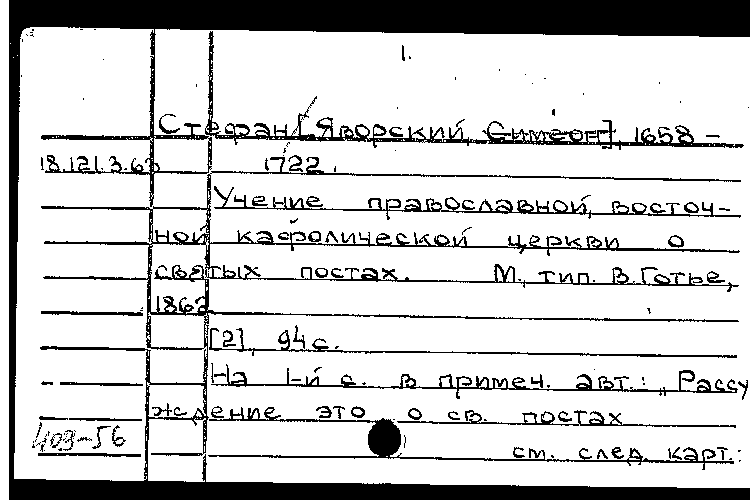 1.
Стефан [Яворский, Симеон], 1658 –
18.121.3.63 1722.
Учение православной, восточ-
ной кафолической церкви о
святых постах. М., тип. В. Готье,
1862
[2], 94 с.
На 1-й с. в примеч. авт.: „Рассу
ждение это о св. постах
409-56
см. след. карт.: